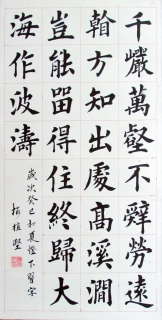 千巖萬壑不辭勞遠
看方知出處高溪澗
豈能留得住終歸大
海作波濤
歲次癸巳初夏燈下習字